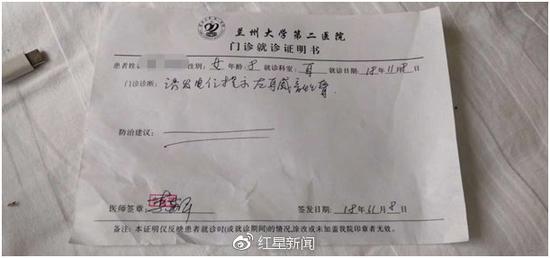 兰州大学第二医院
门诊就诊证明书
患者姓 性别: 女 年龄: 8 就诊科室: 耳 就诊日期: 18.11.8
门诊诊断: 诱发电位提示左耳感音性聋
防治建议:
医师签章: 签发日期: 18.11.8
备注: 本证明仅反映患者就诊时(或就诊期间)的情况,涂改或未加盖我院印章者无效。
红星新闻